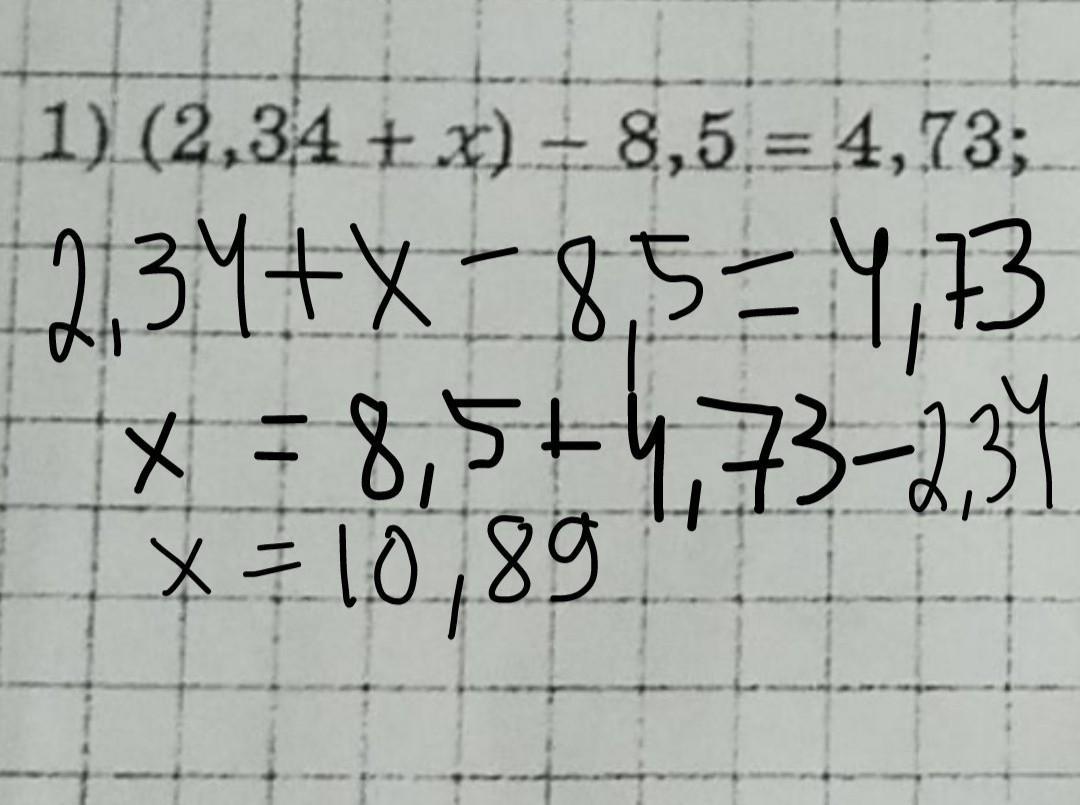 1) (2,34 + x) − 8,5 = 4,73;
2,34+x − 8,5=4,73
x = 8,5+4,73−2,34
x = 10,89